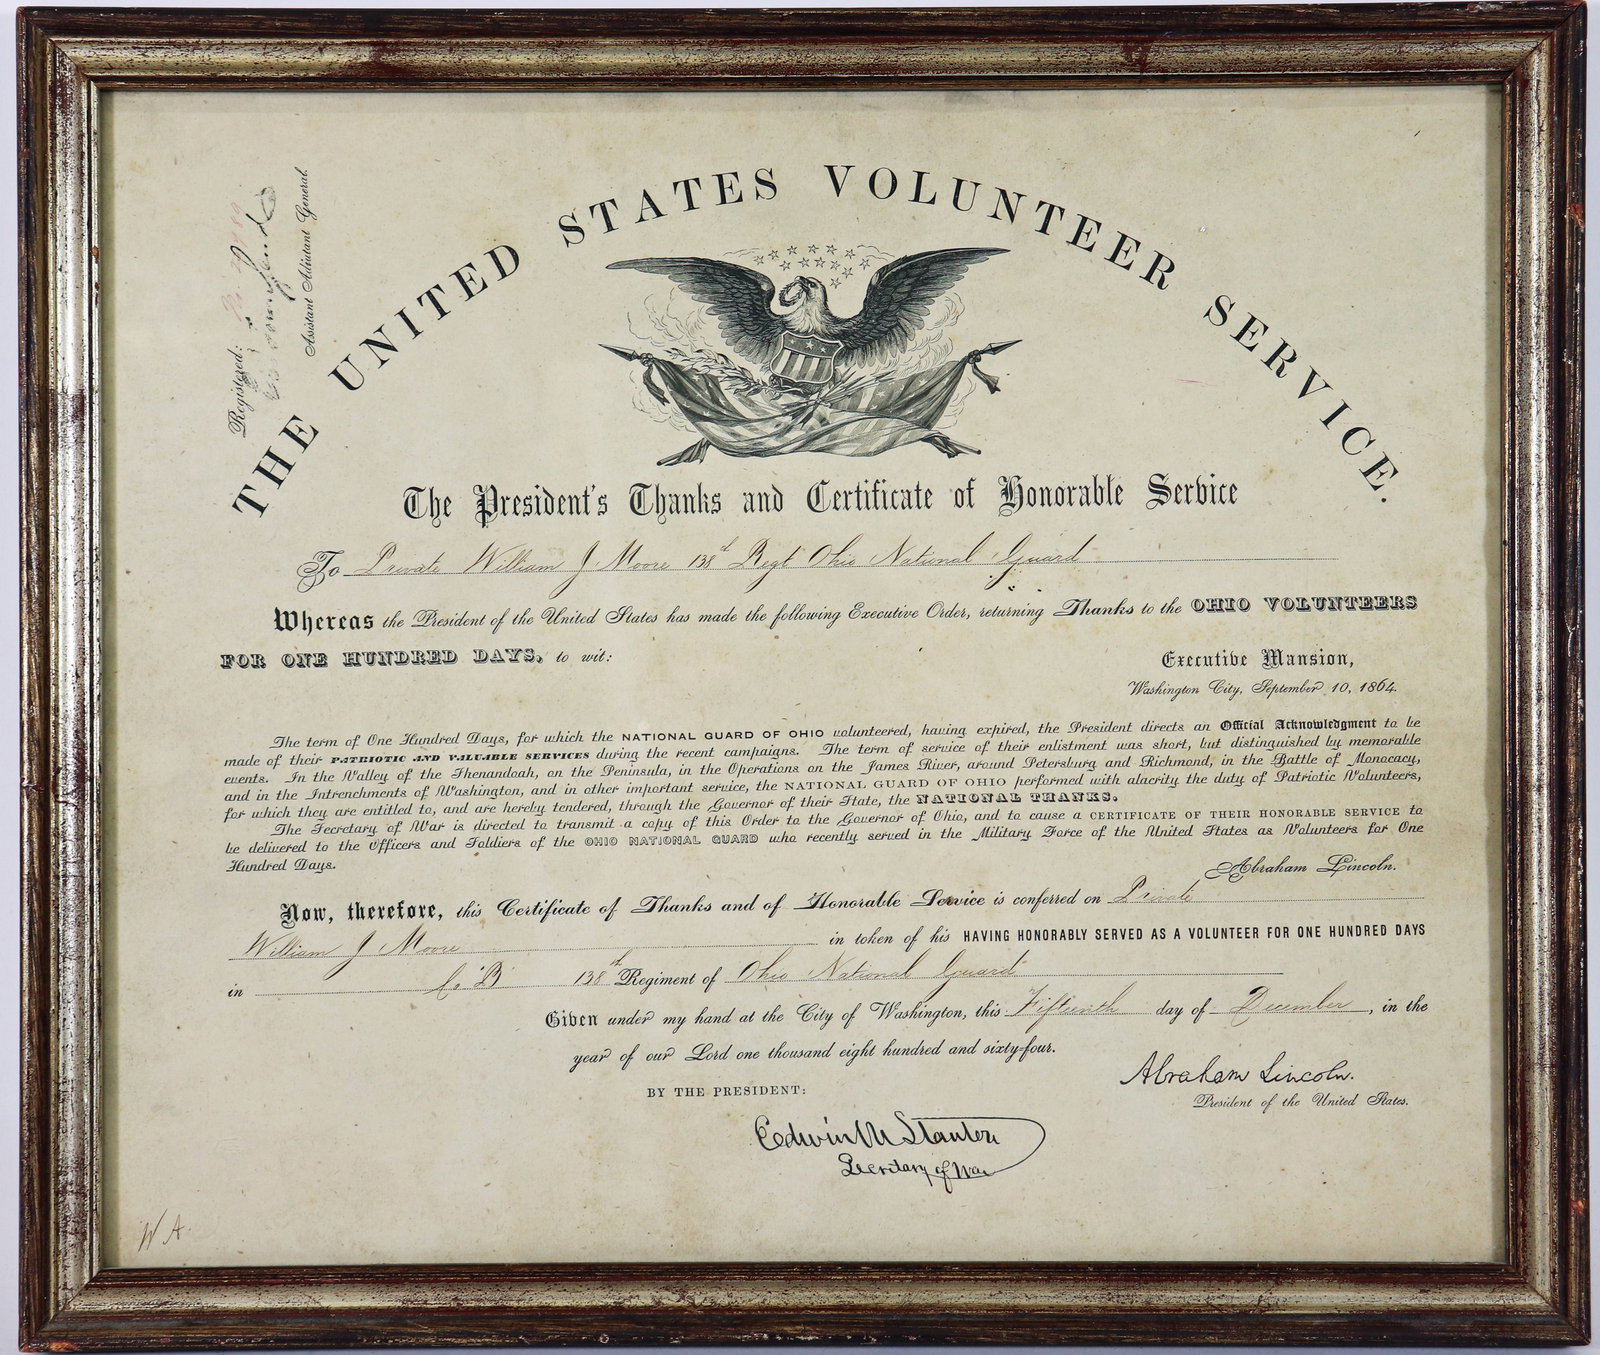 THE UNITED STATES VOLUNTEER SERVICE.
Registered:
Assistant Adjutant General.
The President's Thanks and Certificate of Honorable Service
To Private William J Moore 138th Regt Ohio National Guard
Whereas the President of the United States has made the following Executive Order, returning Thanks to the OHIO VOLUNTEERS
FOR ONE HUNDRED DAYS, to wit:
Executive Mansion,
Washington City, September 10, 1864.
The term of One Hundred Days, for which the NATIONAL GUARD OF OHIO volunteered, having expired, the President directs an Official Acknowledgment to be
made of their PATRIOTIC AND VALUABLE SERVICES during the recent campaigns. The term of service of their enlistment was short, but distinguished by memorable
events. In the Valley of the Shenandoah, on the Peninsula, in the Operations on the James River, around Petersburg and Richmond, in the Battle of Monocacy,
and in the Intrenchments of Washington, and in other important service, the NATIONAL GUARD OF OHIO performed with alacrity the duty of Patriotic Volunteers,
for which they are entitled to, and are hereby tendered, through the Governor of their State, the NATIONAL THANKS.
The Secretary of War is directed to transmit a copy of this Order to the Governor of Ohio, and to cause a CERTIFICATE OF THEIR HONORABLE SERVICE to
be delivered to the Officers and Soldiers of the OHIO NATIONAL GUARD who recently served in the Military Force of the United States as Volunteers for One
Hundred Days.
Abraham Lincoln.
Now, therefore, this Certificate of Thanks and of Honorable Service is conferred on Private
William J Moore in token of his HAVING HONORABLY SERVED AS A VOLUNTEER FOR ONE HUNDRED DAYS
in Co "B" 138th Regiment of Ohio National Guard
Given under my hand at the City of Washington, this Fifteenth day of December, in the
year of our Lord one thousand eight hundred and sixty-four.
Abraham Lincoln.
President of the United States.
BY THE PRESIDENT:
Edwin M Stanton
Secretary of War
W A.